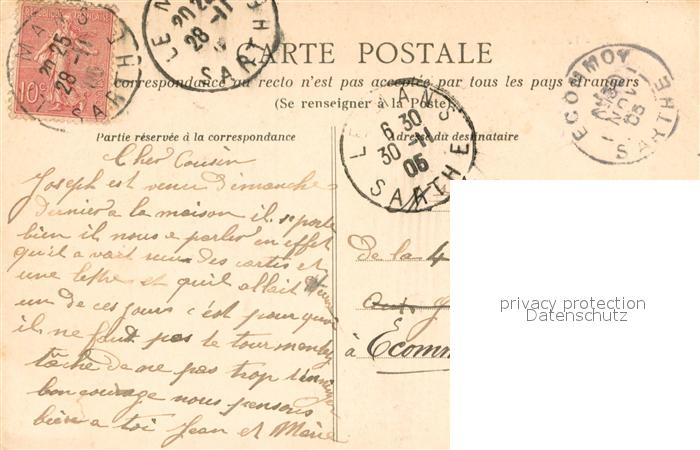 RÉPUBLIQUE FRANÇAISE
10c
LE MANS
20 25
28 -11
SARTHE
LE MANS
20 25
28 -11
SARTHE
CARTE POSTALE
correspondance au recto n'est pas acceptée par tous les pays étrangers
(Se renseigner à la Poste)
LE MANS
6 30
30 -11
05
SARTHE
ECOMMOY
05
SARTHE
Partie réservée à la correspondance
Adresse du destinataire
Cher Cousin
Joseph est venu Dimanche
Dernier a la maison il se porte
bien il nous a parler en effet
qu'il avait reçu des cartes et
une lettre et qu'il allait
un de ces jours c'est pourquoi
il ne faut pas te tourmenter
tâche de ne pas trop t'ennuyer
bon courage nous pensons
bien a toi Jean et Marie
de la 4
à Ecomm
privacy protection
Datenschutz